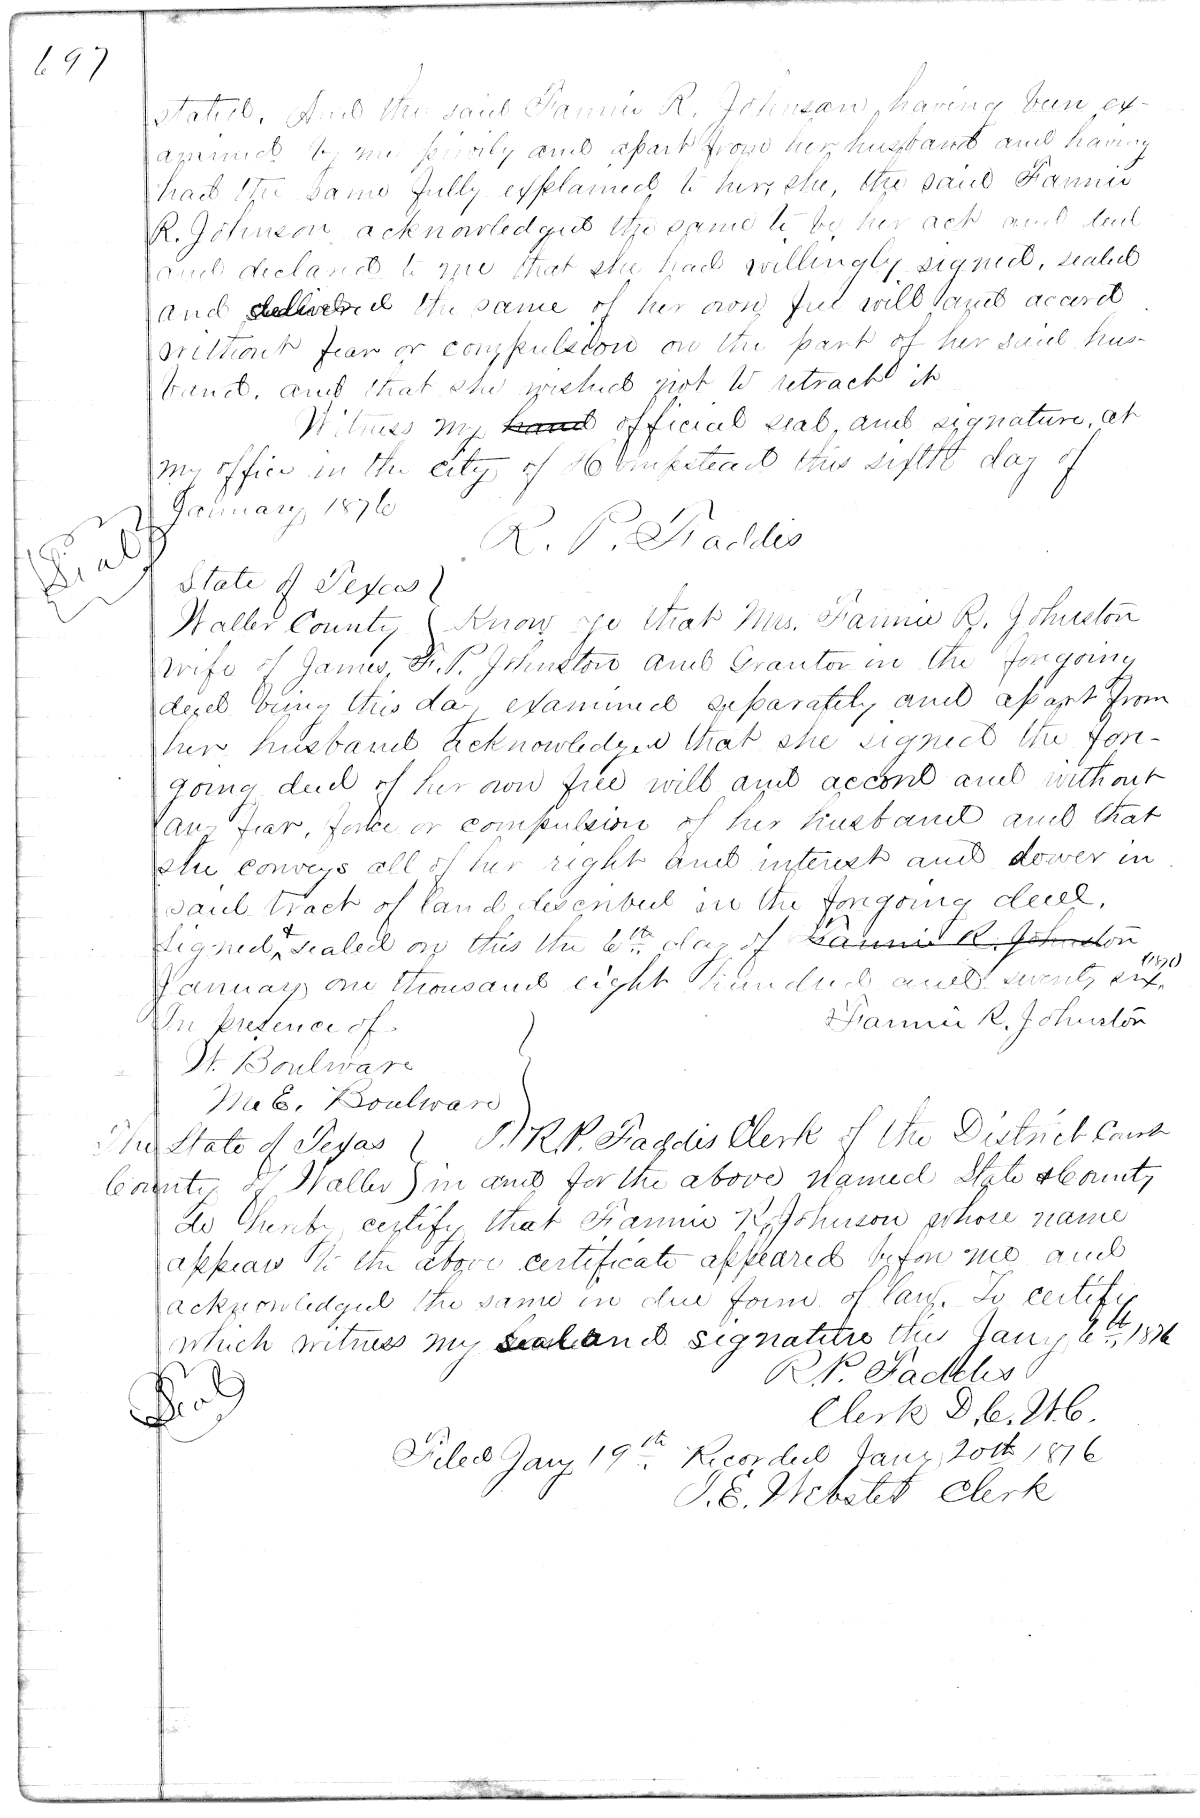 697
stated. And the said Fannie R. Johnson having been ex-
amined by me privily and apart from her husband and having
had the same fully explained to her, she, the said Fannie
R. Johnson acknowledged the same to be her act and deed
and declared to me that she had willingly signed, sealed
and delivered the same of her own free will and accord
without fear or compulsion on the part of her said hus-
band, and that she wished not to retract it
Witness my hand official seal, and signature, at
my office in the city of Hempstead this sixth day of
January 1876
R. P. Faddis
Seal
State of Texas }
Waller County } Know ye that Mrs. Fannie R. Johnston
wife of James F. P. Johnston and Grantor in the forgoing
deed being this day examined separately and apart from
her husband acknowledged that she signed the fore-
going deed of her own free will and accord and without
any fear, force or compulsion of her husband and that
she conveys all of her right and interest and dower in
said tract of land described in the forgoing deed.
Signed & sealed on this the 6th day of Fannie R. Johnston
January one thousand eight hundred and seventy six. (1876)
In presence of } Fannie R. Johnston
W. Boulware
M. E. Boulware
The State of Texas } I. R. P. Faddis Clerk of the District Court
County of Waller } in and for the above named State & County
do hereby certify that Fannie R. Johnson whose name
appears to the above certificate appeared before me and
acknowledged the same in due form of law. To certify
which witness my seal and signature this Jany 6th, 1876
R. P. Faddis
Seal
Clerk D. C. W. C.
Filed Jany 19th Recorded Jany 20th 1876
T. E. Webster Clerk